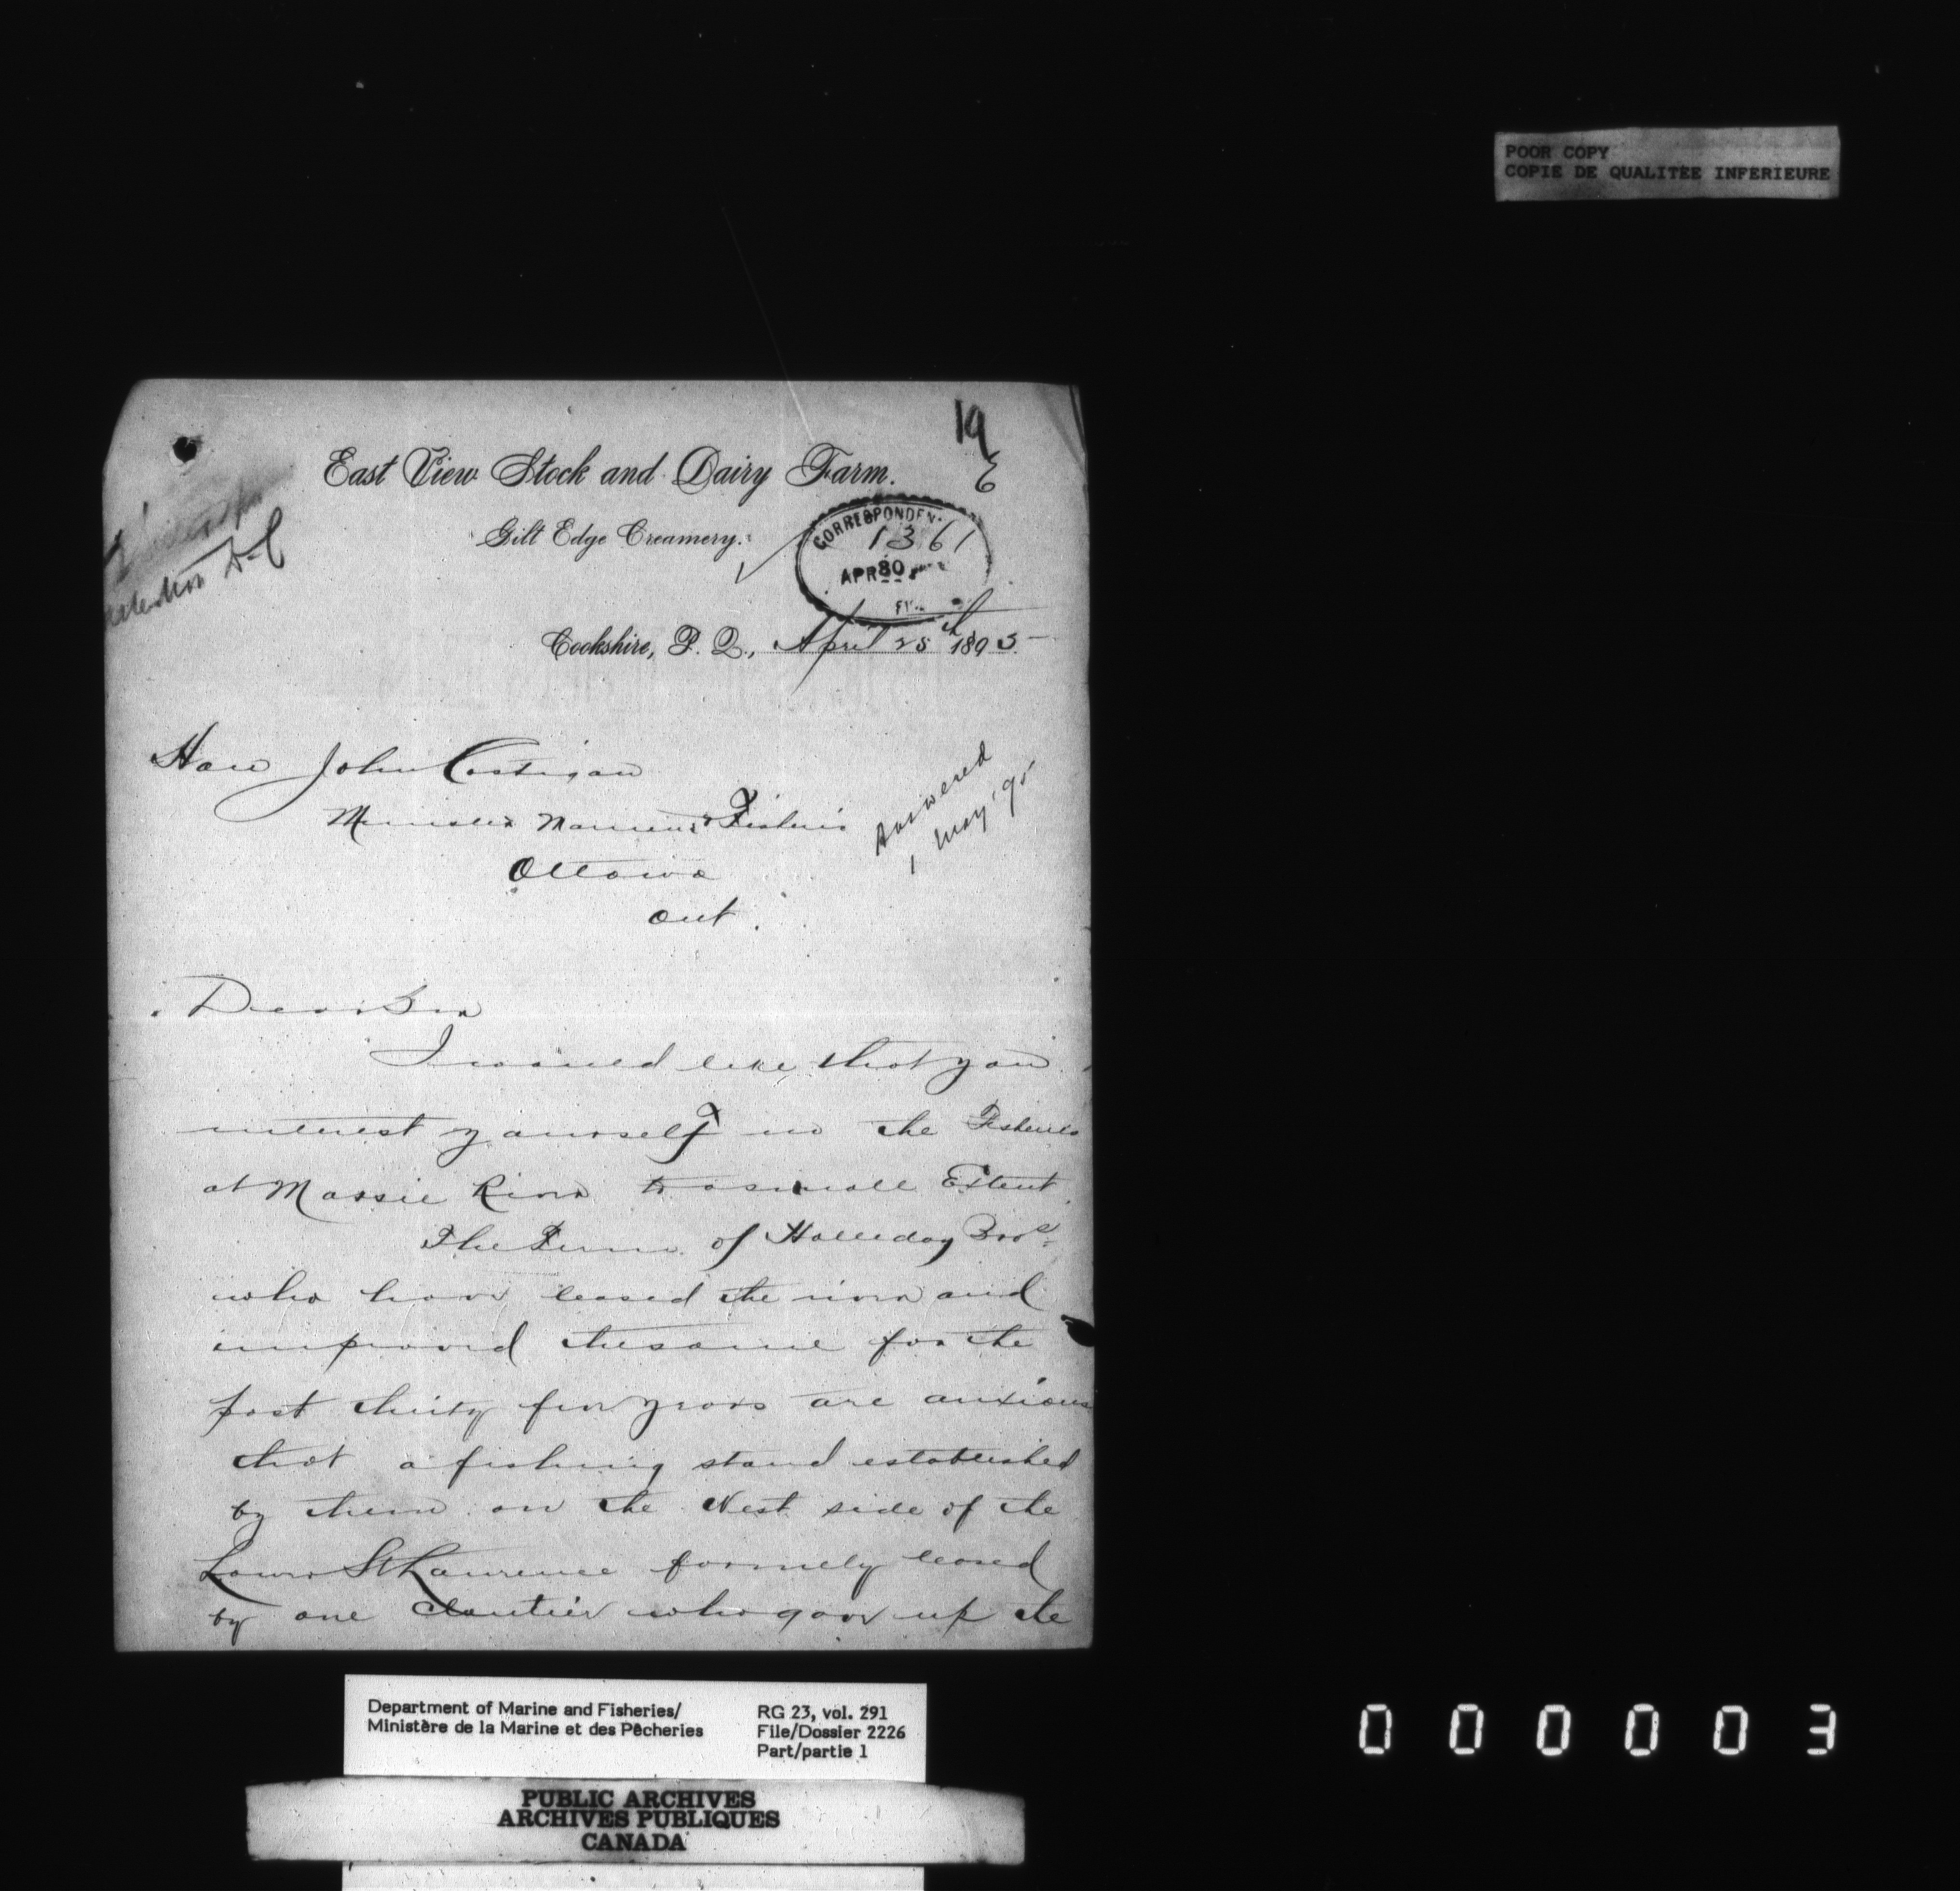 POOR COPY
COPIE DE QUALITEE INFERIEURE
19
E
East View Stock and Dairy Farm.
Gilt Edge Creamery.
CORRESPONDEN
1361
APR 30
Cookshire, P. Q., April 25th 1895.
Hon John Costigan
Minister Marine & Fisheries
Ottawa
Ont.
Answered
1 May '95
Dear Sir
I would like that you
interest yourself in the Fisheries
at Massie River to a small Extent.
The Firm of Holliday Bros.
who have leased the river and
improved the same for the
past thirty five years are anxious
that a fishing stand established
by them on the West side of the
Lower St Laurence formely leased
by one Cloutier who gave up the
Department of Marine and Fisheries/
Ministère de la Marine et des Pêcheries
RG 23, vol. 291
File/Dossier 2226
Part/partie 1
PUBLIC ARCHIVES
ARCHIVES PUBLIQUES
CANADA
000003